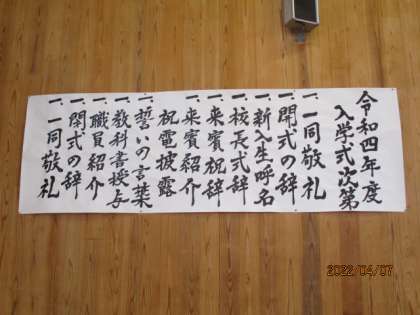 令和四年度
入学式次第
一、一同敬礼
一、開式の辞
一、新入生呼名
一、校長式辞
一、来賓祝辞
一、来賓紹介
祝電披露
一、誓いの言葉
一、教科書授与
一、職員紹介
一、閉式の辞
一、一同敬礼
2022/04/07